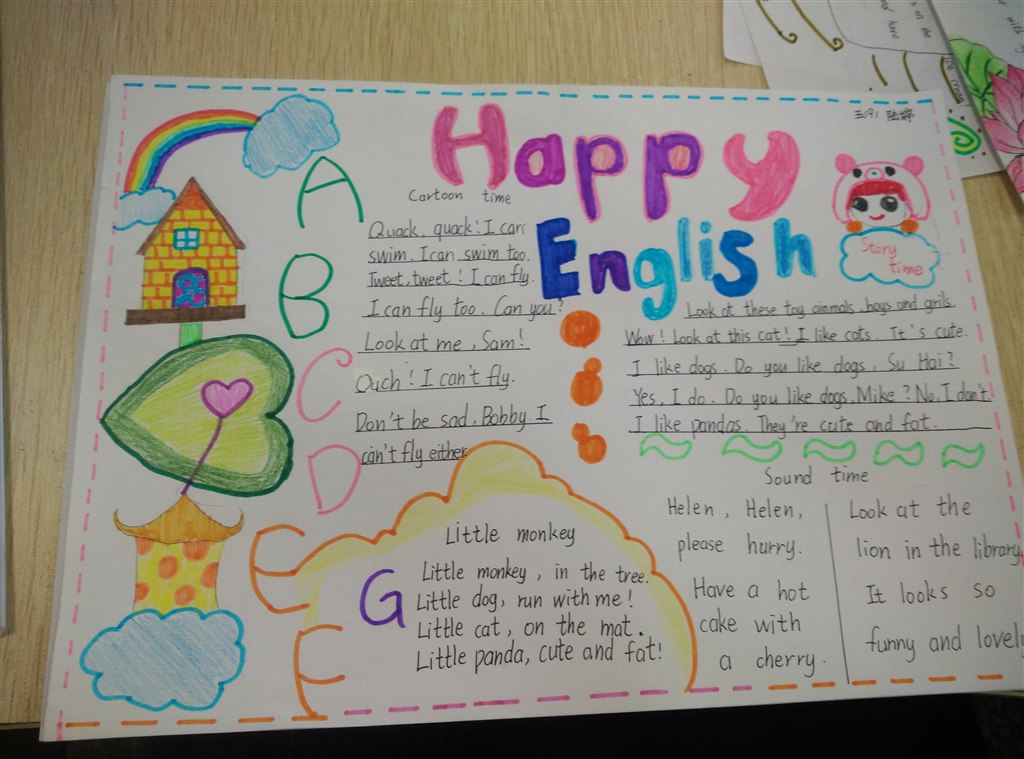 五(9) 陆婷
Happy
English
A
B
C
D
E
F
G
Cartoon time
Quack, quack! I can
swim. I can swim too.
Tweet, tweet! I can fly.
I can fly too. Can you?
Look at me, Sam!
Ouch! I can't fly.
Don't be sad, Bobby. I
can't fly either.
Story
time
Look at these toy ainmals, boys and grils.
Wow! Look at this cat! I like cats. It's cute.
I like dogs. Do you like dogs, Su Hai?
Yes, I do. Do you like dogs, Mike? No, I don't.
I like pandas. They're cute and fat.
Little monkey
Little monkey, in the tree.
Little dog, run with me!
Little cat, on the mat.
Little panda, cute and fat!
Sound time
Helen, Helen,
please hurry.
Have a hot
cake with
a cherry.
Look at the
lion in the library
It looks so
funny and lovely
on the
have
ice cream
with